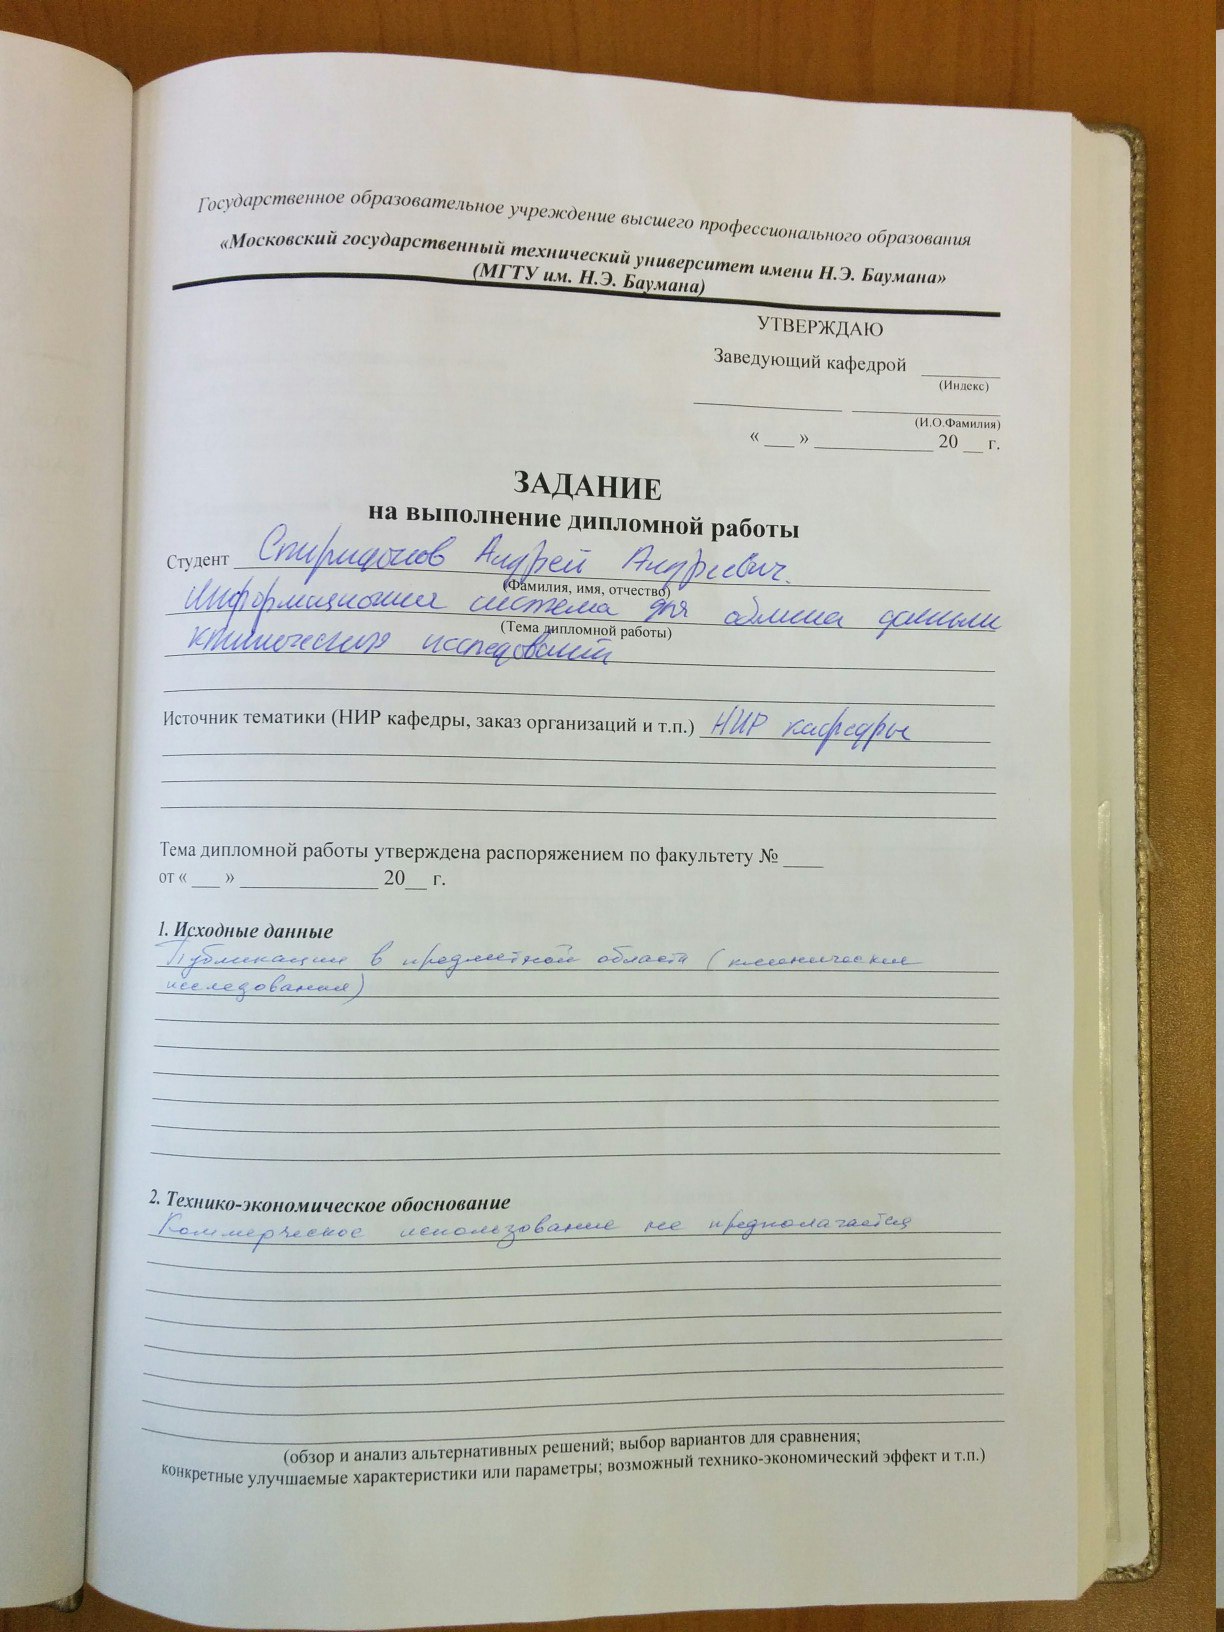 Государственное образовательное учреждение высшего профессионального образования
«Московский государственный технический университет имени Н.Э. Баумана»
(МГТУ им. Н.Э. Баумана)
УТВЕРЖДАЮ
Заведующий кафедрой ________
(Индекс)
_______________ _______________
(И.О.Фамилия)
« ___ » ____________ 20 __ г.
ЗАДАНИЕ
на выполнение дипломной работы
Студент Спиридонов Андрей Андреевич.
(Фамилия, имя, отчество)
Информационная система для обмена данными
(Тема дипломной работы)
клинических исследований
Источник тематики (НИР кафедры, заказ организаций и т.п.) НИР кафедры
Тема дипломной работы утверждена распоряжением по факультету № ____
от « ___ » ______________ 20__ г.
1. Исходные данные
Публикации в предметной области (клинические
исследования)
2. Технико-экономическое обоснование
Коммерческое использование не предполагается
(обзор и анализ альтернативных решений; выбор вариантов для сравнения;
конкретные улучшаемые характеристики или параметры; возможный технико-экономический эффект и т.п.)